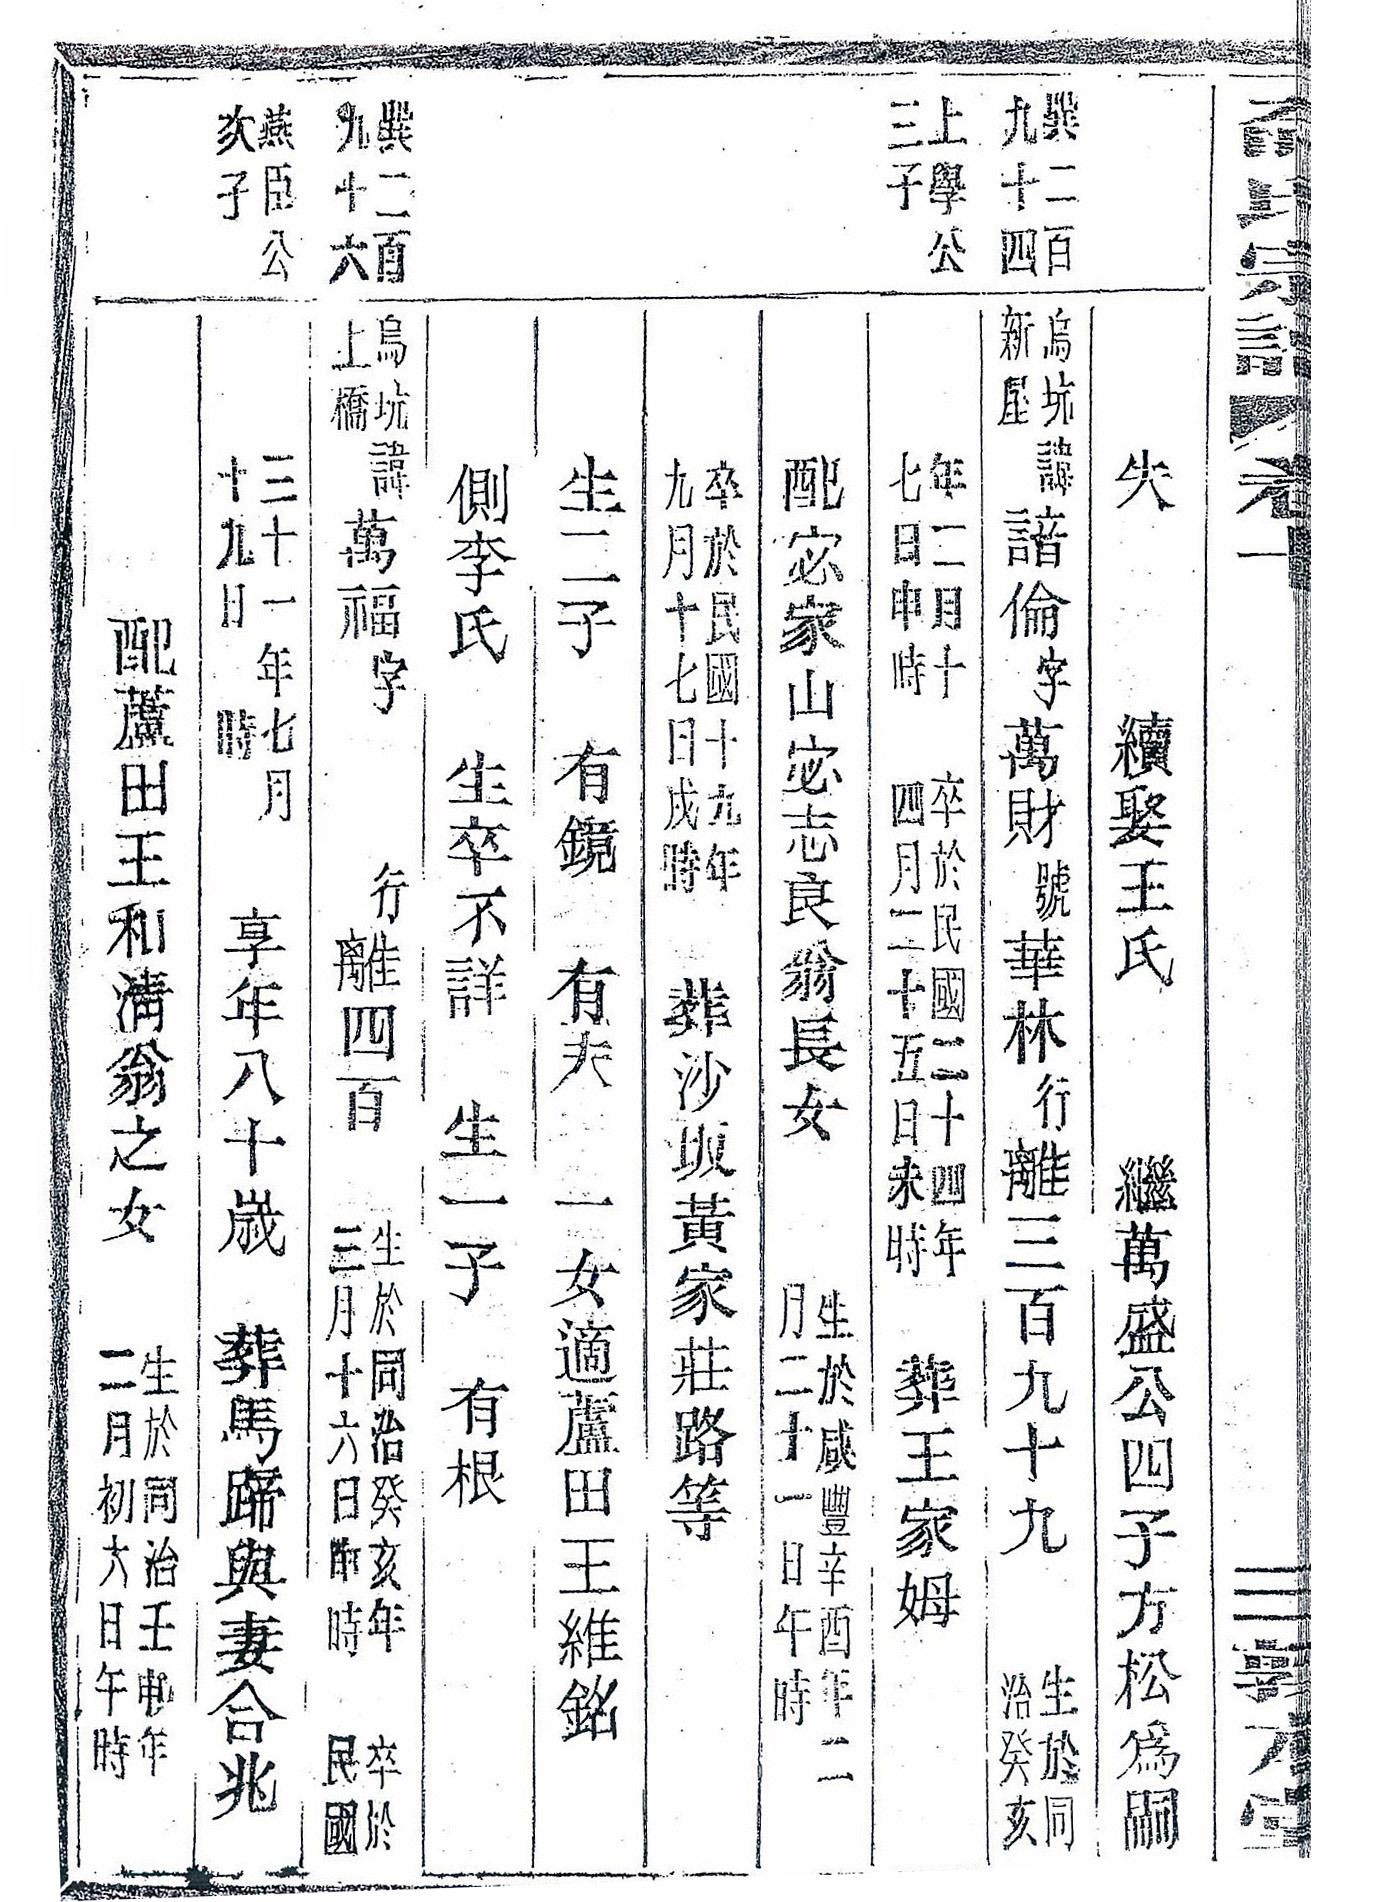 氏宗譜 卷一 三
失 續娶王氏 繼萬盛公四子方松為嗣
巽二百
九十四
烏坑
新屋
諱諳倫字萬財號華林行離三百九十九
生於同
治癸亥
上學公
三子
年二月十
七日申時
卒於民國二十四年
四月二十五日未時
葬王家姆
配宓家山宓志良翁長女
生於咸豐辛酉年二
月二十一日午時
卒於民國十九年
九月十七日戌時
葬沙坂黃家莊路等
生二子 有鏡 有夫 一女適蘆田王維銘
側李氏 生卒不詳 生一子 有根
巽二百
九十六
烏坑
上橋
諱萬福字 行離四百
生於同治癸亥年
三月十六日 時
卒於
民國
燕臣公
次子
三十一年七月
十九日 時
享年八十歲 葬馬蹄與妻合兆
配蘆田王和清翁之女
生於同治壬申年
二月初六日午時